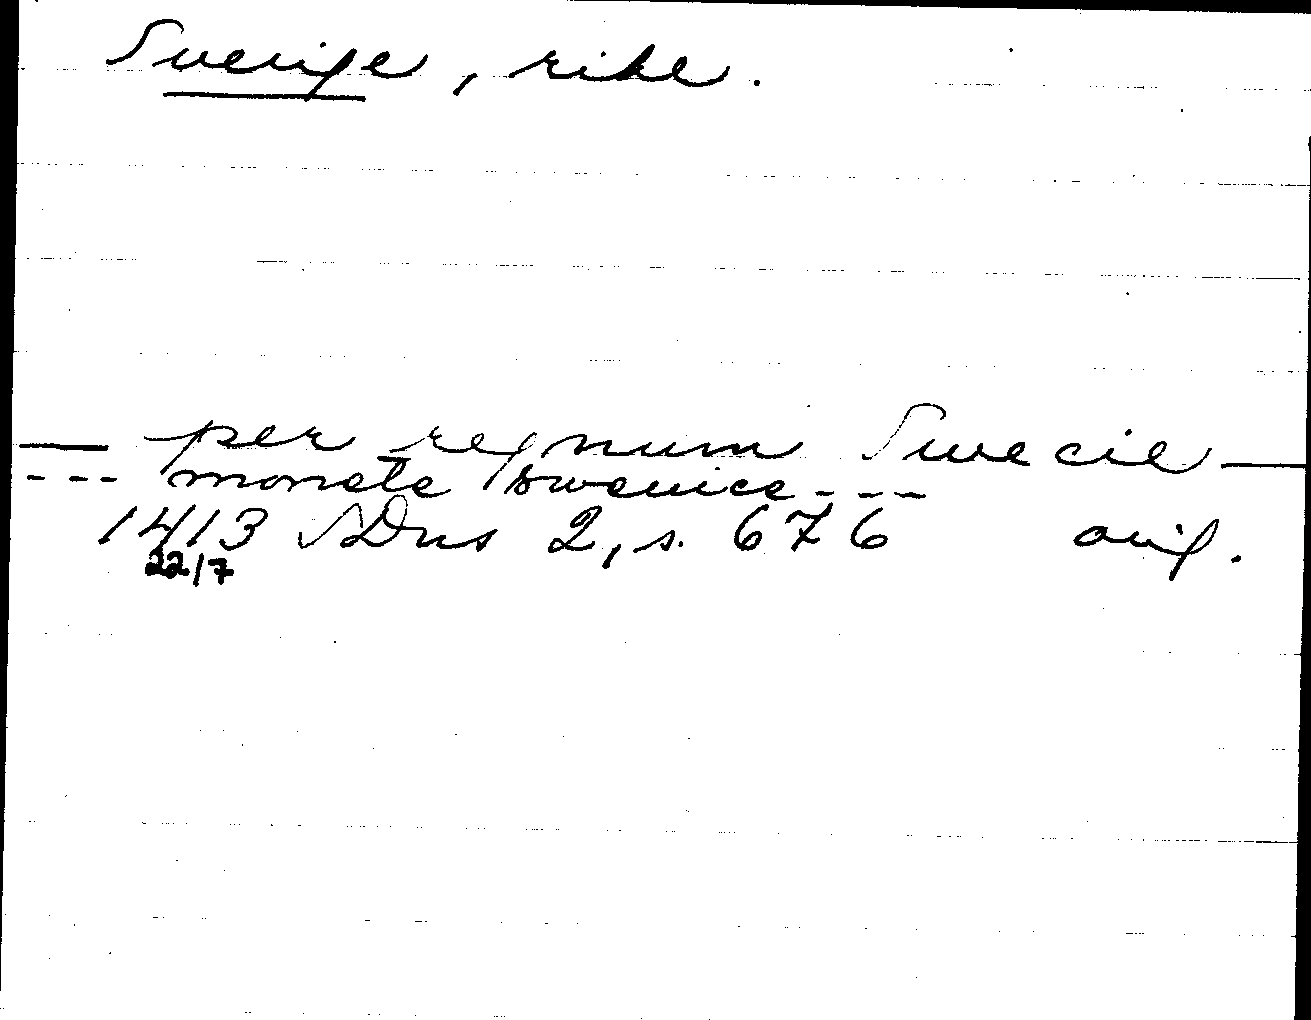 Sverige, rike.
— per regnum Swecie —
--- monete swenice ---
1413 SDns 2, s. 676 orig.
22/7